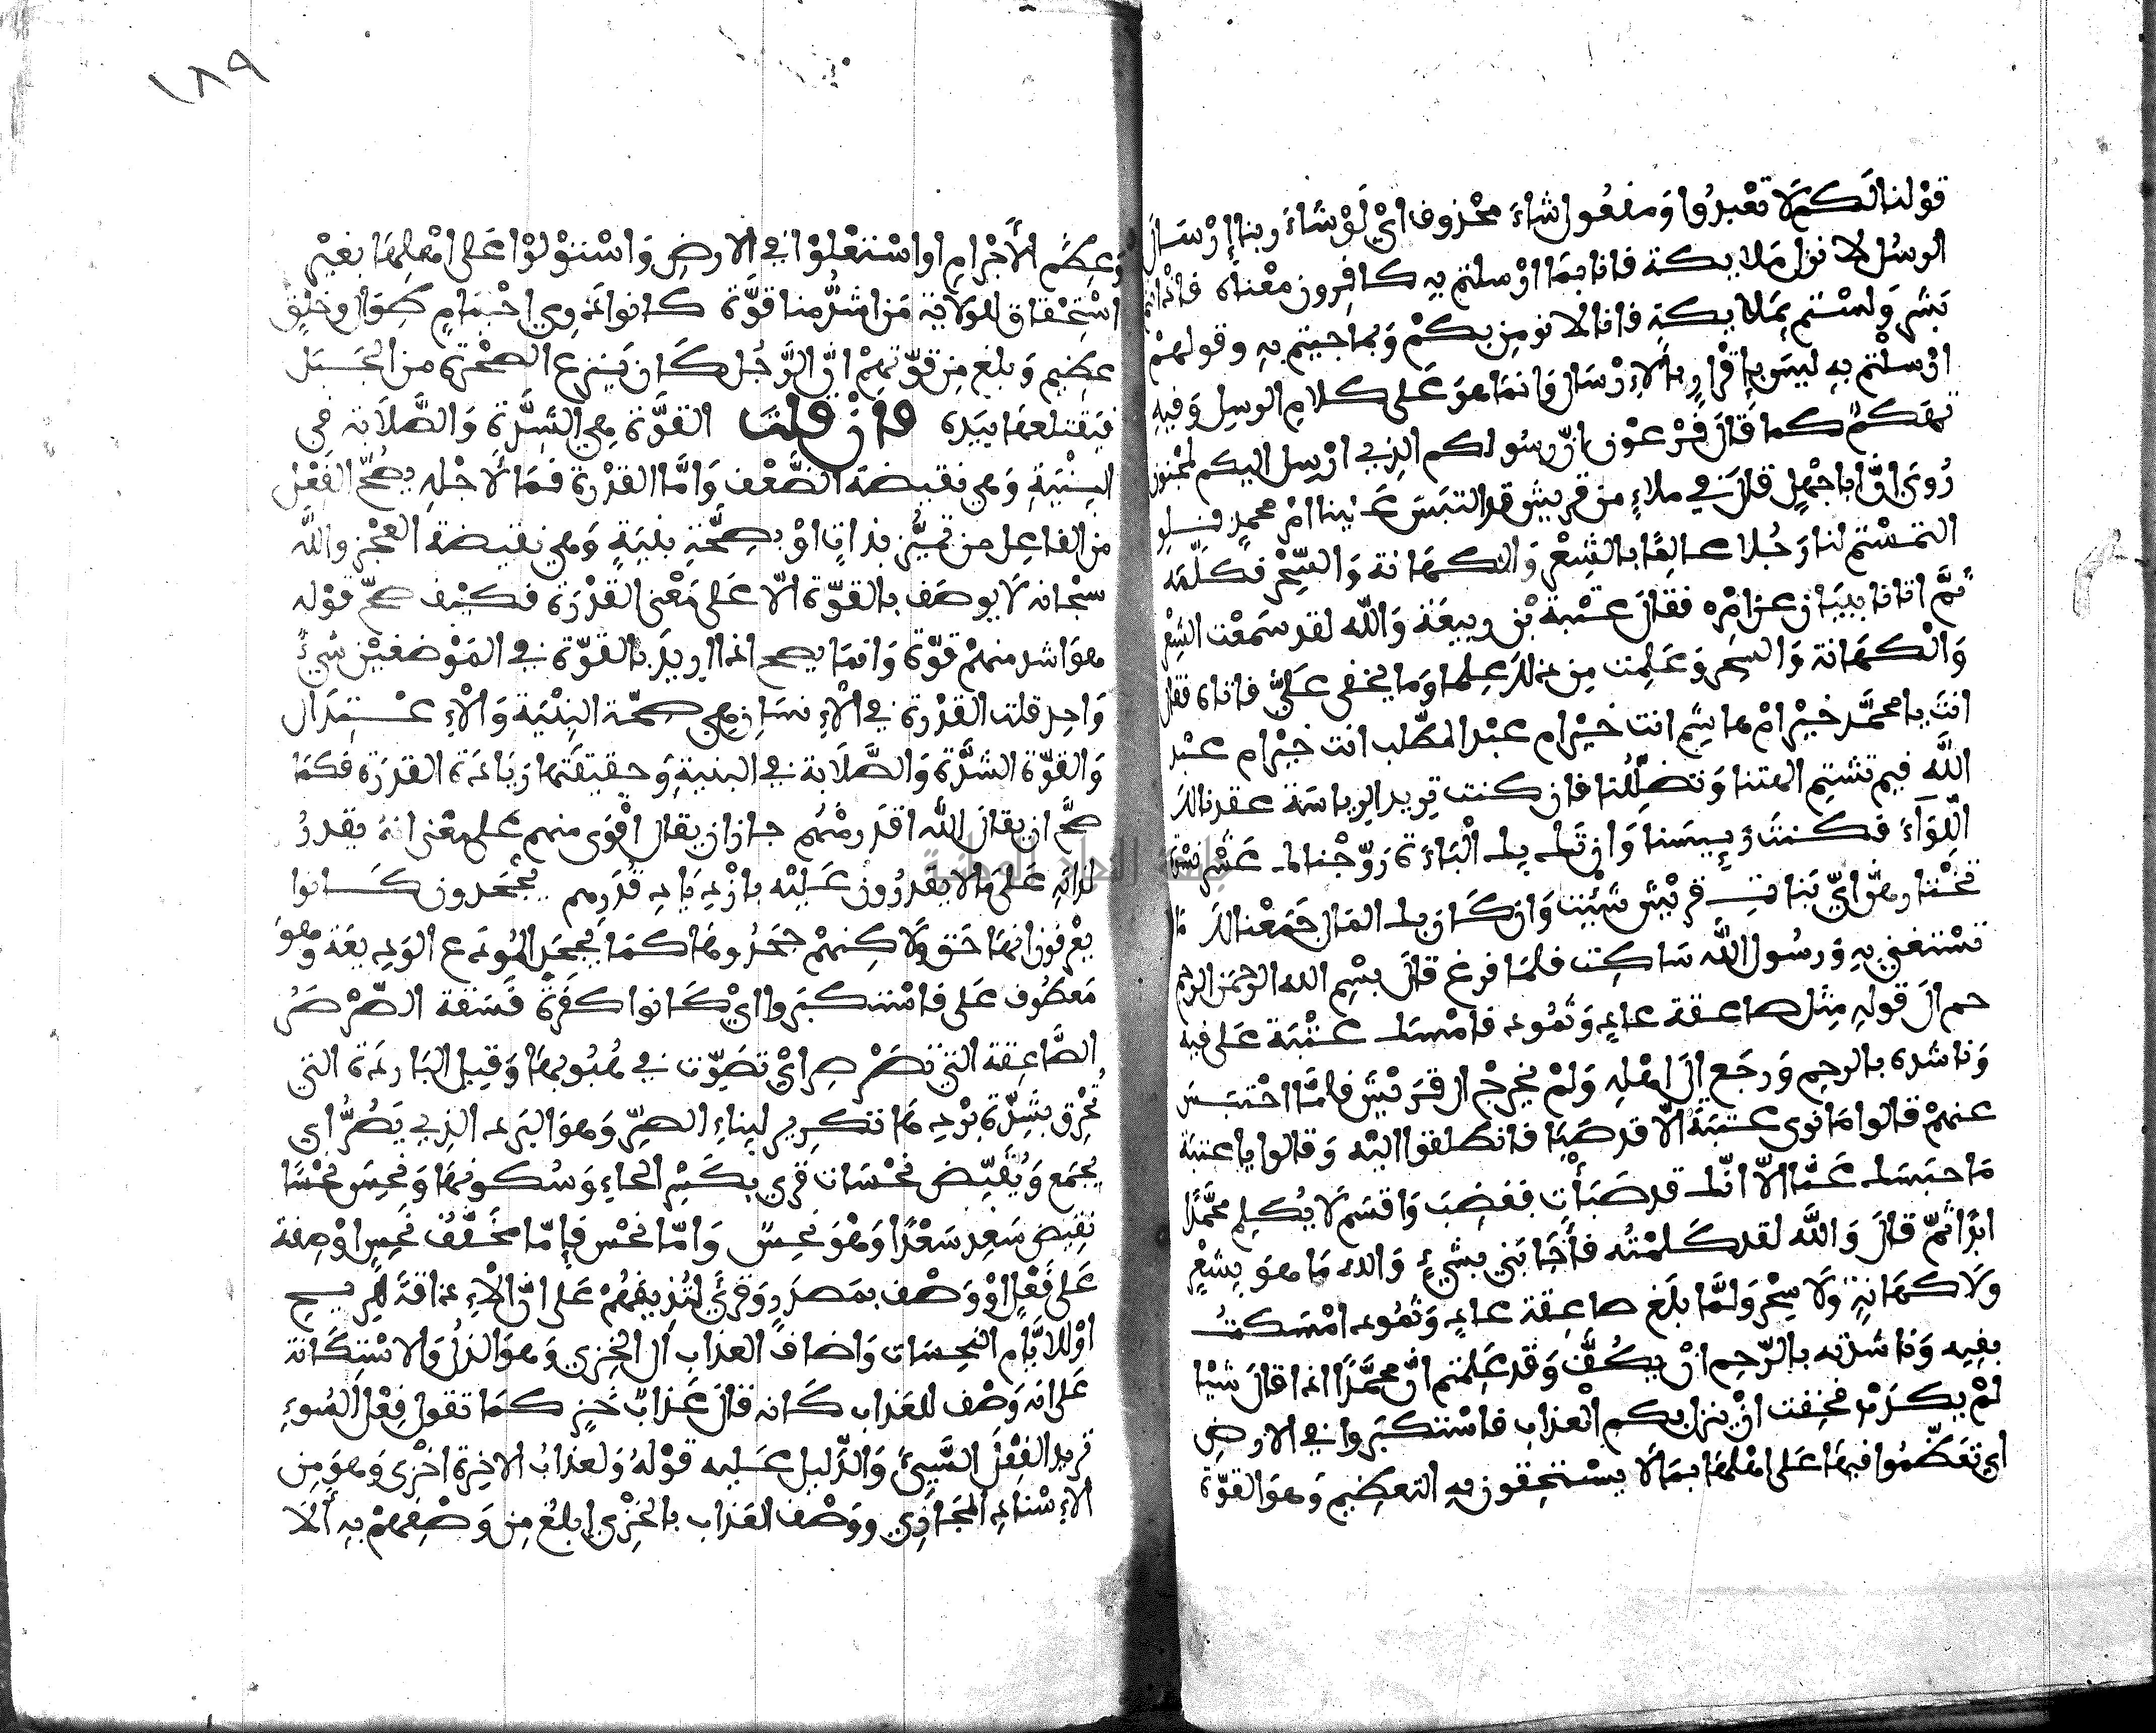 قوْلنا لَكم لَا تعْبدُوا وَمفعُول شاءَ محْذوف ايْ لَوْ شَاءَ ربنا إِرْسَالَ
الرسُل لَانزل مَلايكة فانا بمَا ارْسلتم بِه كافِرون معْناه فاذْ انتم
بَشر وَلسْتم بمَلايكةٍ فانا لا نومِن بكمْ وَبما جيتم بهِ وقولهمْ
ارْسلْتم بهِ ليسَ بإقْرارٍ بالإرْسَال وَانمَا هوَ عَلى كلامِ الرسِل وَفيهِ
تهكمٌ كما قَالَ فرْعوْن انّ رسُولكم الذِي ارْسِل اليكم لمجْنون
رُويَ انّ ابا جَهْلٍ قالَ في ملاءٍ من قريش قد التبَسَ عَلينا امْر محمدٍ فلو
التمسْتم لنا رَجُلا عالِمًا بالشِعْر وَالكهَانة وَالسِّحْر فكَلَّمَه
ثمَّ اتانا ببيَان عن امْرِه فقالَ عتْبة بْن ربيعَة وَالله لقد سَمعْت الشِعْر
وَالْكهَانة وَالسِحر وَعَلِمت مِن ذلكَ عِلما وَما يخفى عَليَّ فاتاه فقال
انتَ يا محمَّد خيْر امْ هاشِم انت خيْر ام عبْد المطّلب انت خيْر ام عبْد
اللَّه فيم تشتِم الهتنا وَتضلِّلُنا فان كنت تريد الرياسَة عقدنا لكَ
اللِّوَاءَ فكنتَ رَيِيسَنا وَان تَك بك الْبَاءَة زوّجْناك عَشر نسْوَة
تخْتارهنّ ايّ بَنات قريْش شيْت وَان كَان بك المَال جَمَعْنا لكَ مَا
تسْتغني بهِ وَرسُول الله سَاكِت فلمَا فرغ قالَ بسْمِ الله الرحمن الرحيم
حم الَى قولهِ مِثْل صاعقة عادٍ وَثمُود فامْسك عتْبَة عَلى فيه
وَناشده بالرحِم وَرجَع الَى اهْلِه وَلمْ يخرجْ الى قرَيْش فلمَّا احْتبَسَ
عنهمْ قالوا مَا نرى عتبَة الَّا قد صَبَا فانطلقوا اليْه وَقالوا يا عتبة
مَا حبَسك عَنَّا الّا انّك قد صَبَأت فغضِبَ وَاقسَم لَا يُكلِم محَمَّدًا
ابدًا ثمّ قالَ وَاللَّه لقد كَلمْتُه فأجَابَني بشيْءٍ وَالله مَا هوَ بِشعْرٍ
ولَا كهَانةٍ وَلا سِحْرٍ وَلمَّا بلَغ صاعِقة عادٍ وَثمُود امْسَكتُ
بفِيه وَناشدْته بالرّحِم انْ يكُفّ وَقد عَلِمتم انّ محمَّدًا اذا قالَ شيْا
لمْ يكذبْ فخِفت انْ ينزل بكم الْعذاب فاسْتكبَروا في الارضِ
اي تعَظّمُوا فيهَا عَلى اهْلهَا بمَا لا يسْتحِقون بهِ التعظيم وَهوَ القوّة
١٨٩
وَعِظَم الأَجْرامِ او اسْتعْلوْا في الارضِ وَاسْتوْلوْا عَلى اهْلِهَا بغيْر
اسْتِحْقاق للوَلاية مَن اشَدُّ منا قوَّة كانوا ذَوِي اجْسَامٍ طِوَالٍ وخلْقٍ
عظيم وَبلغ مِن قوّتهمْ انّ الرَّجُل كَان يَنزع الصخْرة من الجَبَل
فيَقتلعهَا بيَدِه فَانْ قلتَ القوَّة هِي الشِدَّة وَالصَّلَابَة في
البِنْيَةِ وَهي نقيضة الضَّعْف وَامَّا القدْرة فمَا لأجْلهِ يصِحّ الفِعْل
من الفاعِل من تميُّزٍ بذاتٍ اوْ بصِحّةِ بنْيَةٍ وَهي نقيضة العجْز والله
سبْحانه لَا يوصَف بالقوّة الّا عَلى مَعْنى القدْرَة فكيْف صحّ قوْله
هوَ اشد منهمْ قوّة وَانمَا يصح اذا اريدَ بالقوّة في المَوْضعَيْن شيْءٌ
وَاحِد قلت القدْرة في الإِنسَان هِي صحّة البِنْيَة وَالإِعْتِدَال
وَالقوّة الشدَّة وَالصَّلَابة في البنيةِ وَحقيقتهَا زيَادَة القدرَة فكمَا
صحّ ان يقالَ اللّه اقدَر منْهم جاز ان يقال اقْوَى منهم عَلى مَعْنى انهُ يقدرُ
لذاتهِ عَلى مَا لا يقدرُون عَليْه بازْدِيَاد قُدَرِهم يجْحَدون كَانوا
يعْرفون انهَا حَق وَلَاكِنهمْ جحَدُوهَا كمَا يجْحَد المُودَع الوَدِيعَة وَهوَ
مَعطُوف عَلى فاسْتكبَروا ايْ كَانوا كفرَة فَسَقة الصّرْصَرُ
الصَّاعِقة التي تصَرْصِر ايْ تصَوِّت في هُبُوبهَا وَقيل البَاردَة التي
تحْرِق بشِدّة برْدِهَا تكرير لبناءِ الصِّر وَهوَ البَرْد الذِي يَصُرُّ اي
يجْمَع وَيُقبّض نحْسَات قري بكَسْر الحاءِ وَسُكونهَا وَنحِسَ نحْسًا
نقيض سَعِد سَعْدًا وَهْوَ نحِسٌ وَامّا نحْس فإمّا مُخَفّف نحِسٍ اوْ صِفة
عَلى فَعْلٍ اوْ وَصْف بمَصدَرٍ وَقرئَ لتُذِيقهُمْ عَلى انّ الْإِذاقَة للرِيح
اوْ للايَّام النحِسَات وَاضافَ العذاب الَى الخِزي وَهوَ الذلُ وَالاسْتكَانة
عَلى انه وَصْف للعَذاب كَانه قالَ عَذابٌ خَزٍ كمَا تقول فِعْل السُوءِ
تريد الفِعْلَ السَّيِئَ وَالدَّليل عَليه قوْلهُ وَلعذابُ الاخِرة اخْزى وَهوَ مِن
الإِسْناد المجَازي ووَصْف العَذاب بالخزْي ابلغ مِن وَصْفِهمْ بِه ألَا